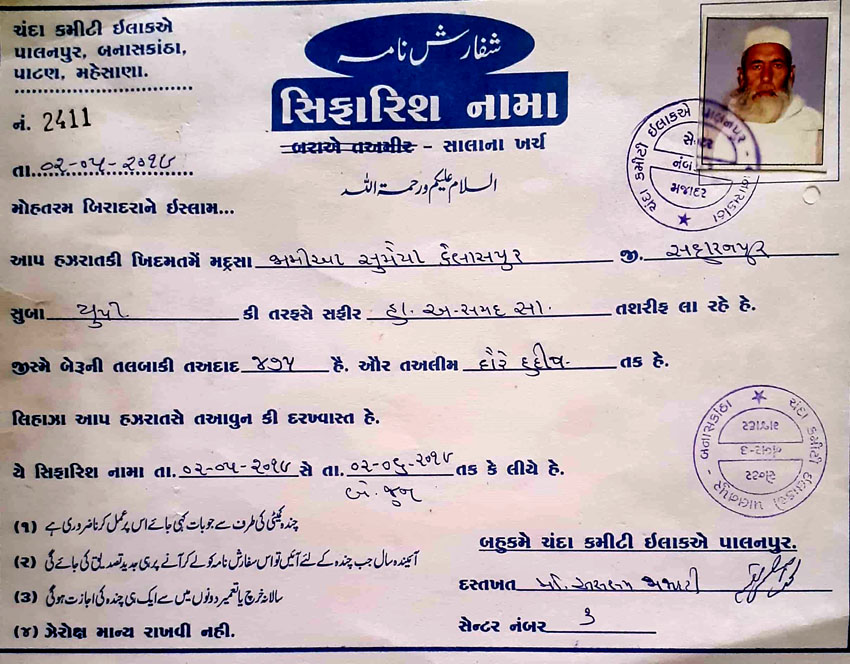 ચંદા કમિટી ઈલાકએ
પાલનપુર, બનાસકાંઠા,
પાટણ, મહેસાણા.
شفارش نامہ
સિફારિશ નામા
નં. 2411
બરાએ તઅમીર – સાલાના ખર્ચ
તા. ૦૨-૦૫-૨૦૧૭
السلام علیکم ورحمۃ اللہ
મોહતરમ બિરાદરાને ઈસ્લામ...
આપ હઝરાતકી ખિદમતમેં મદ્રસા જામીઆ સુમૈયા કૈલાસપુર જી. સહારનપુર
સુબા યુપી કી તરફસે સફીર હા. અ-સમદ સા. તશરીફ લા રહે હે.
જીસ્મે બેરૂની તલબાકી તઅદાદ ૪૭૫ હૈ. ઔર તઅલીમ દૌરે હદીષ તક હે.
લિહાઝા આપ હઝરાતસે તઆવુન કી દરખ્વાસ્ત હે.
યે સિફારિશ નામા તા. ૦૨-૦૫-૨૦૧૭ સે તા. ૦૨-૦૬-૨૦૧૭ તક કે લીયે હે.
બે જુન
(૧) چندہ کمیٹی کی طرف سے جو بات کہی جائے اس پر عمل کرنا ضروری ہے
(૨) آئیندہ سال جب چندہ کے لئے آئیں تو اس سفارش نامہ کو لے کر آنے پر ہی جدید تصدیق کی جائے گی
(૩) سالانہ خرچ یا تعمیر دونوں میں سے ایک ہی چندہ کی اجازت ہوگی
(૪) ઝેરોક્ષ માન્ય રાખવી નહી.
બહુકમે ચંદા કમિટી ઈલાકએ પાલનપુર.
દસ્તખત
સેન્ટર નંબર ૩
ચંદા કમીટી ઈલાકએ પાલનપુર - બનાસકાંઠા
સેન્ટર
નંબર
મજાદર
ચંદા કમીટી ઈલાકએ પાલનપુર - બનાસકાંઠા
સેન્ટર
નંબર-૩
મજાદર